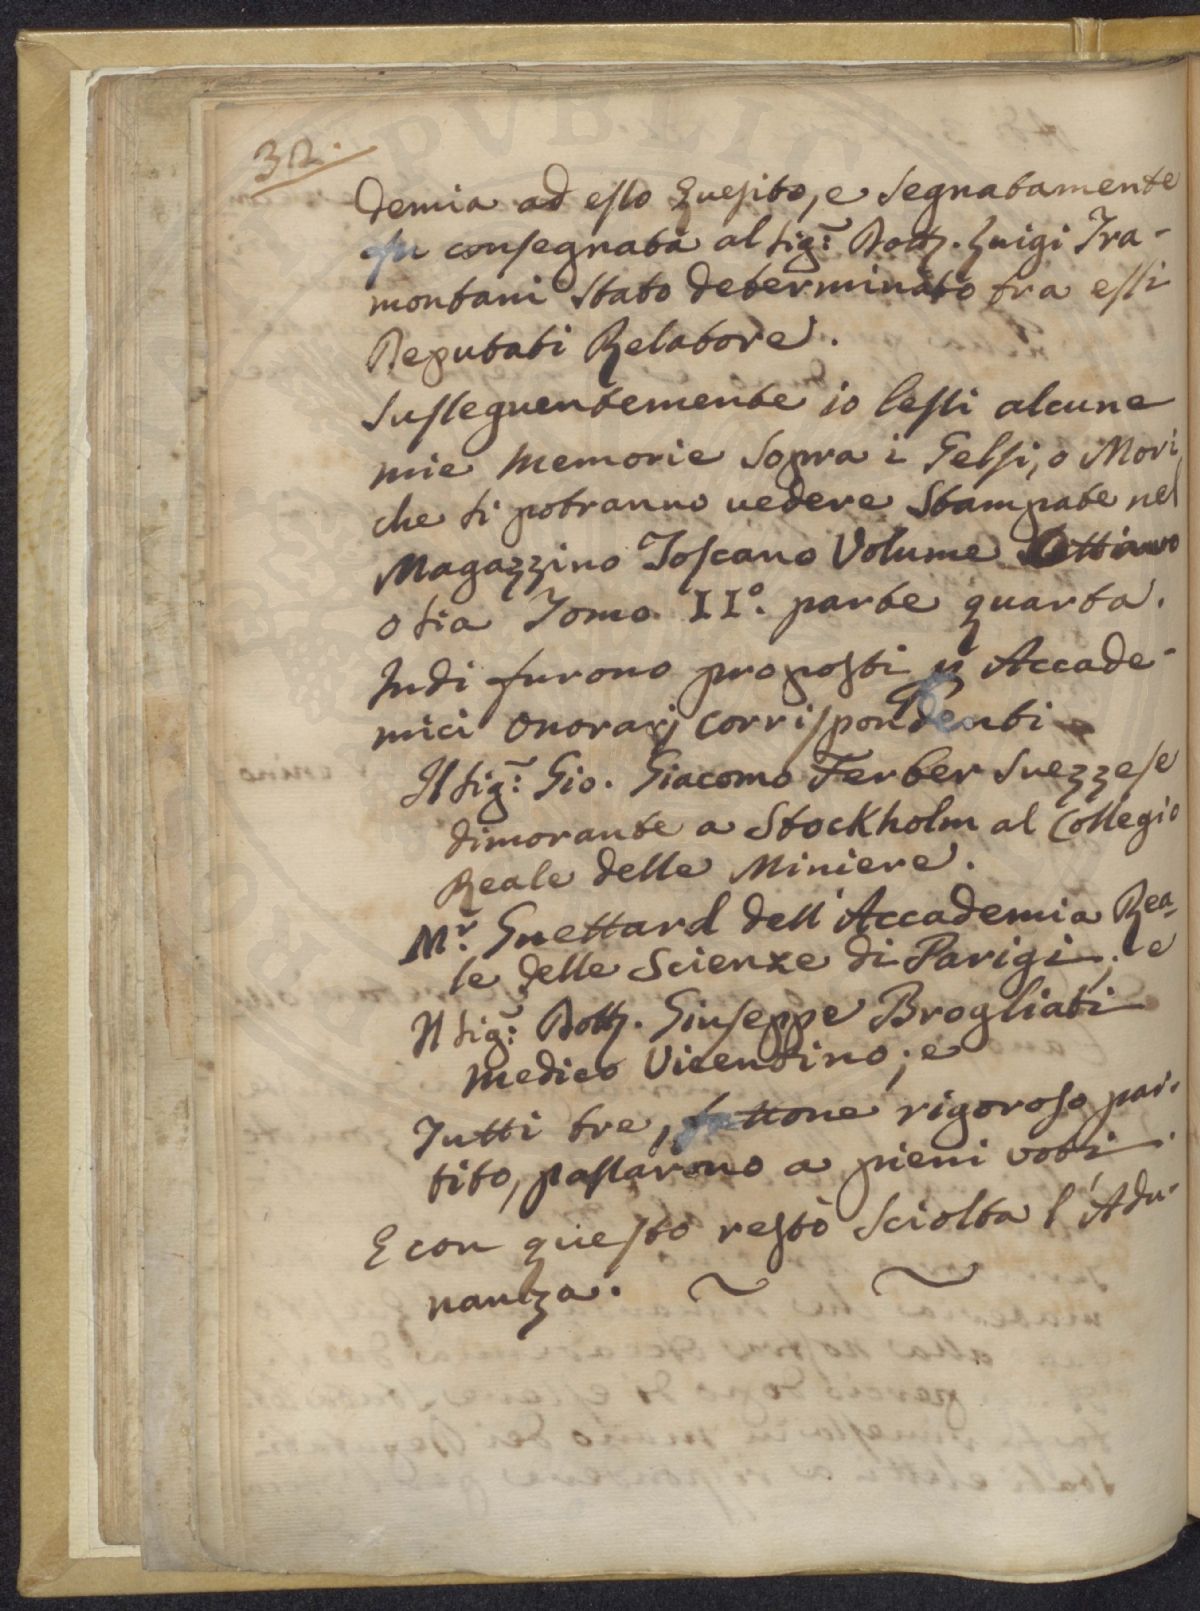 32.
demia ad esso Quesito, e segnatamente
fu consegnata al Sig.r Dott.r Luigi Tra-
montani stato determinato fra essi
Deputati Relatore.
Susseguentemente io lessi alcune
mie memorie sopra i Gelsi, o Mori
che si potranno vedere stampate nel
Magazzino Toscano Volume Ottavo
o sia Tomo II°. parte quarta.
Indi furono proposti p Accade-
mici Onorarj Corrispondenti
Il Sig.r Gio. Giacomo Ferber Svezzese
dimorante a Stockholm al Collegio
Reale delle Miniere.
M.r Guettard dell'Accademia Rea-
le delle Scienze di Parigi; e
Il Sig.r Dott.r Giuseppe Brogliati
medico Vicentino; e
Tutti tre, fattone rigoroso par-
tito, passarono a pieni voti.
E con questo restò sciolta l'Adu-
nanza.